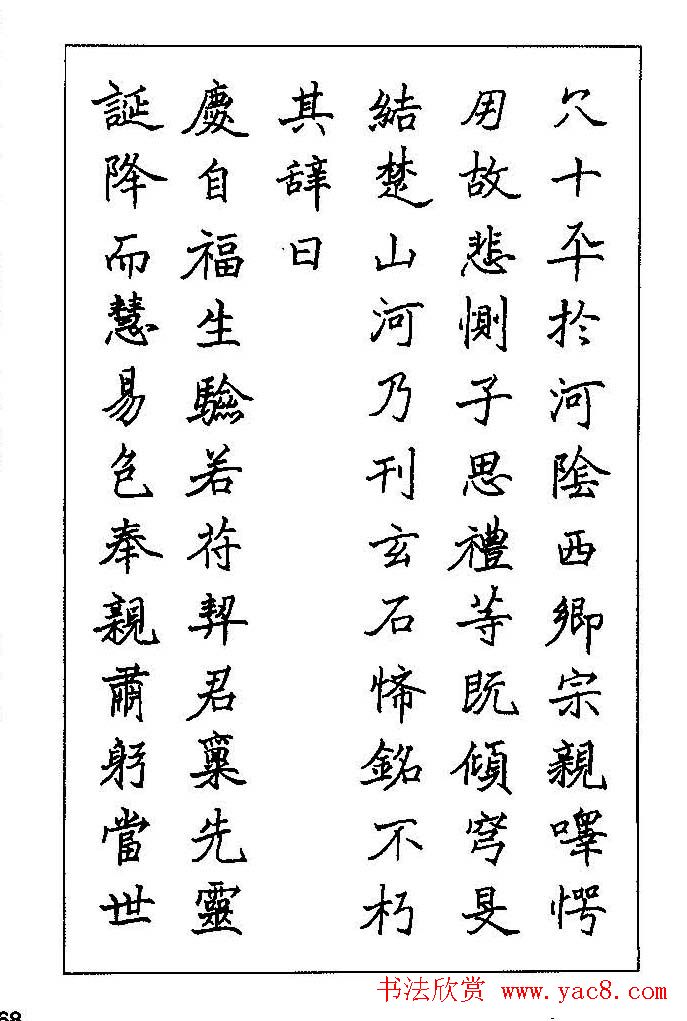 穴十卒於河陰西鄉宗親嘷愕
用故悲惻子思禮等既傾穹旻
結楚山河乃刊玄石悕銘不朽
其辞曰
慶自福生驗若苻契君稟先靈
誕降而慧易色奉親肅躬當世
书法欣赏 www.yac8.com
68